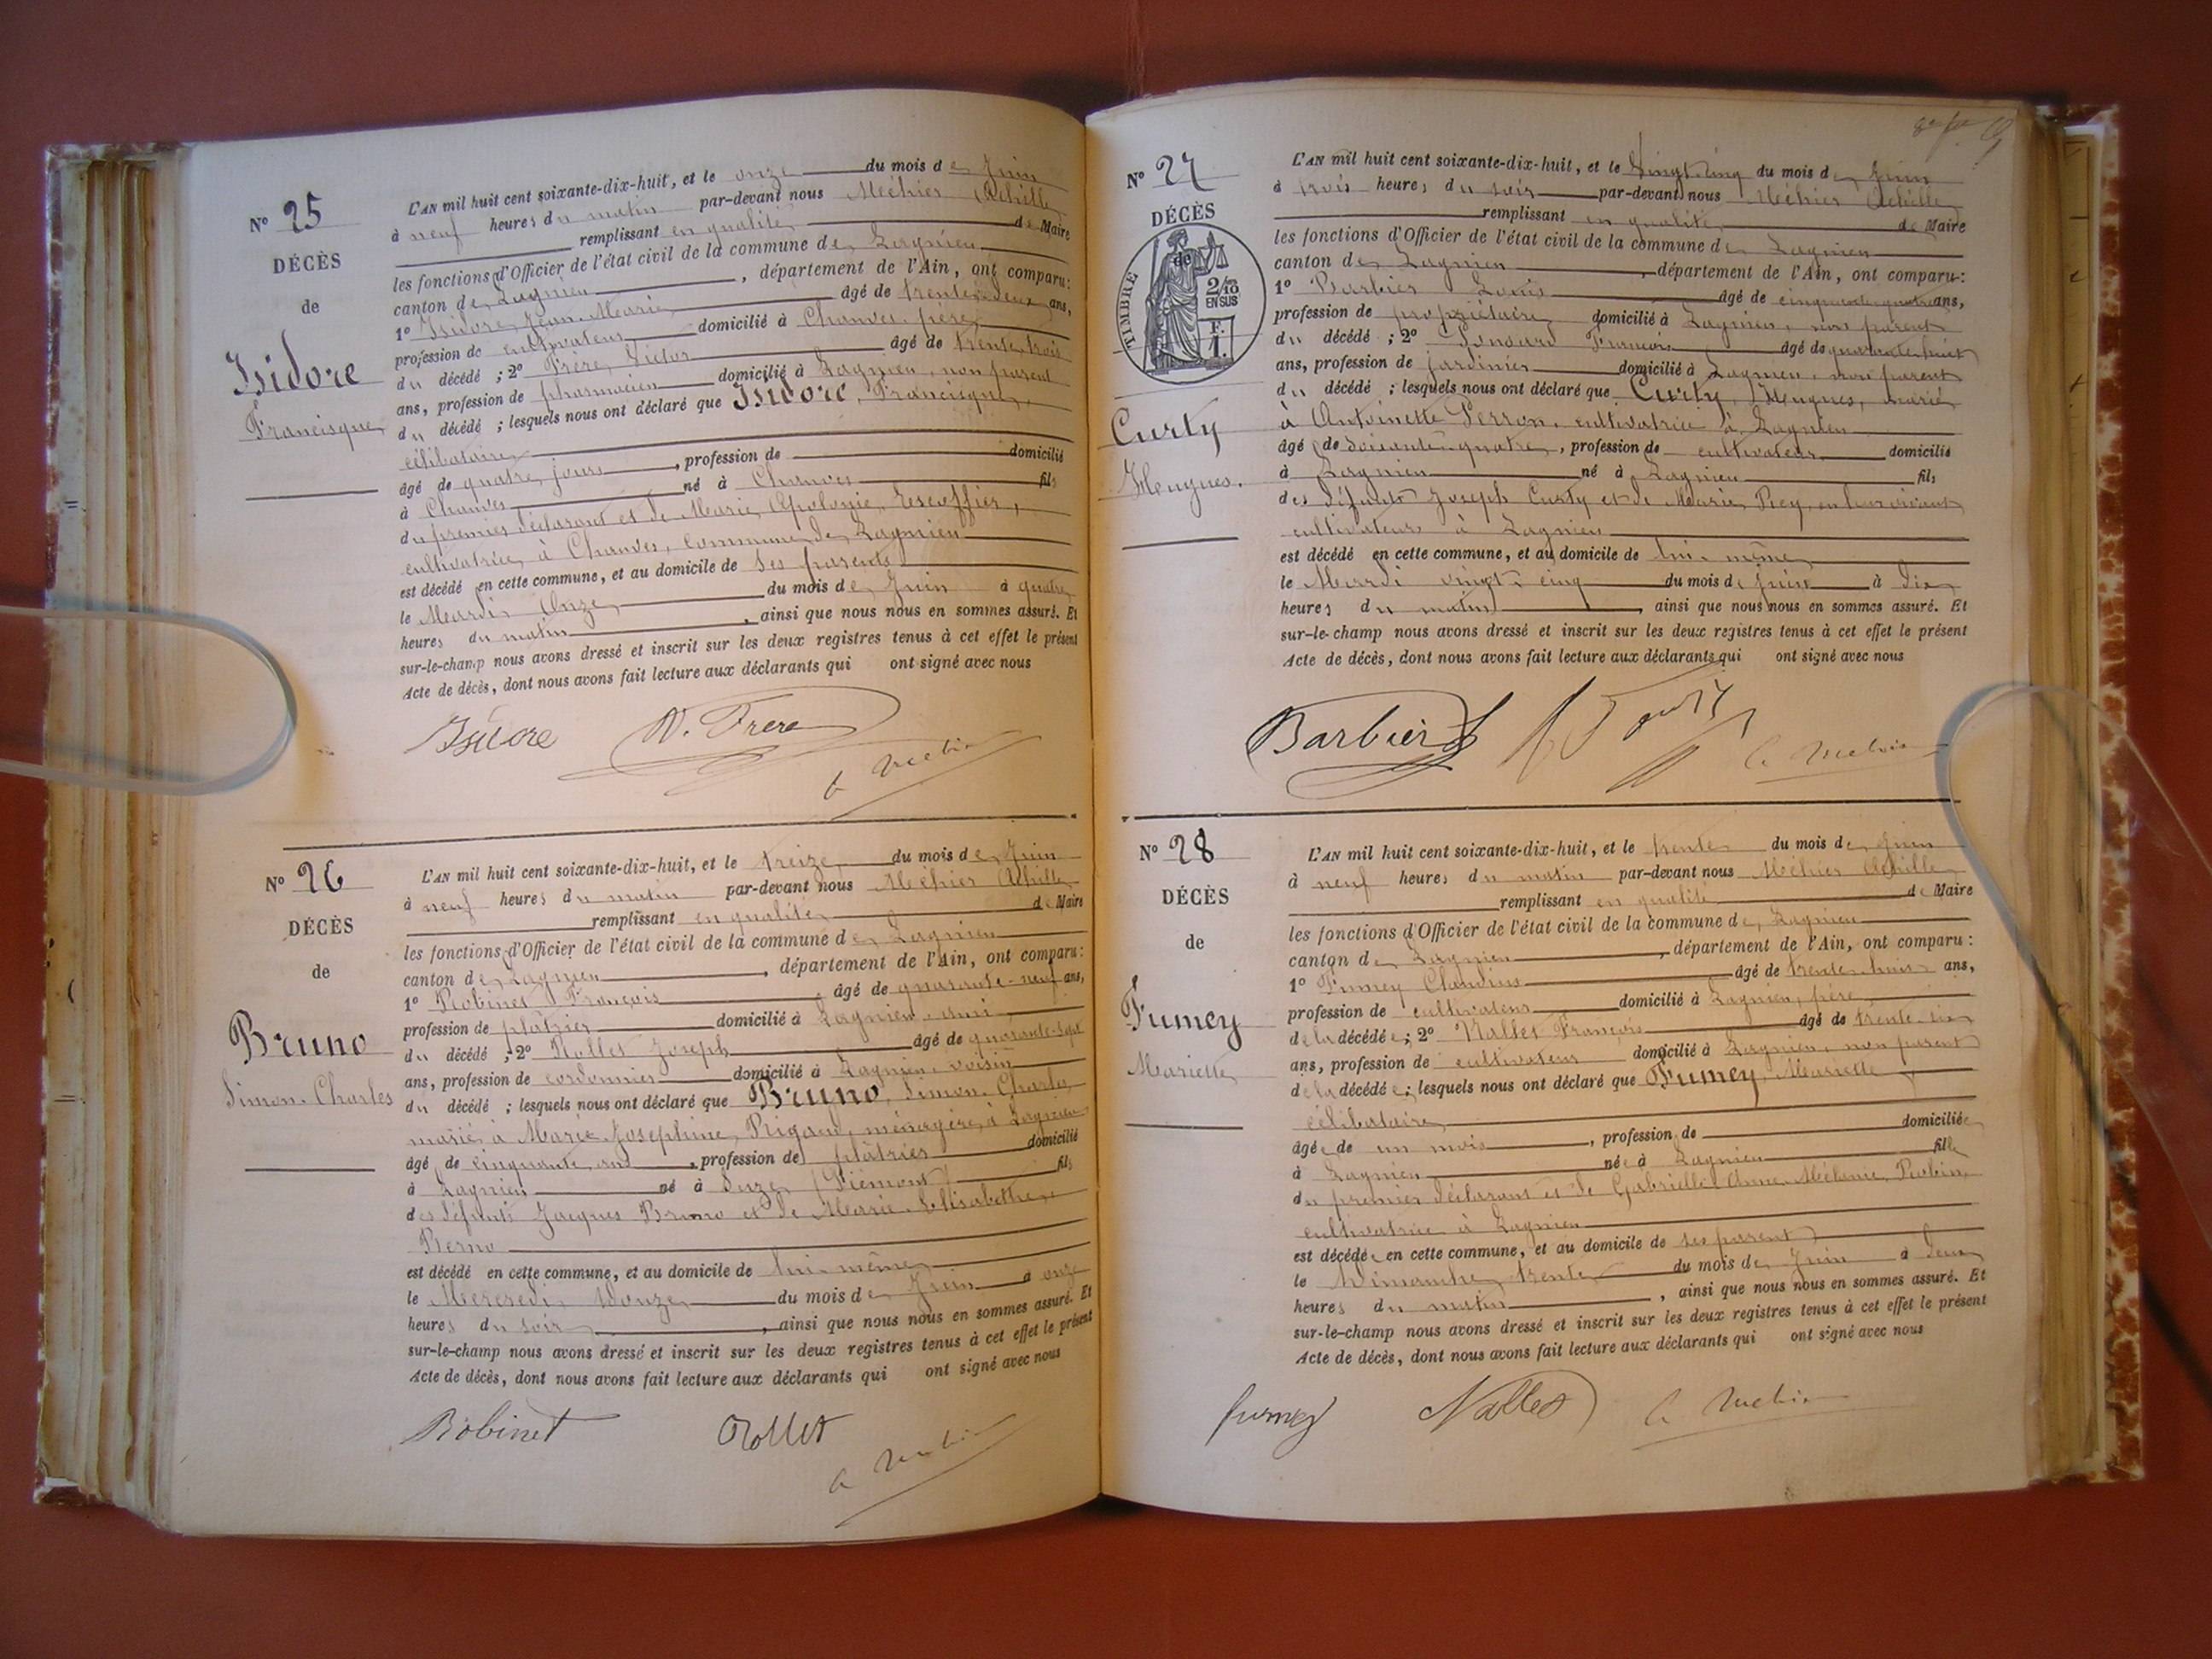 N° 25
DÉCÈS
de
Isidore
Francisque
L'AN mil huit cent soixante-dix-huit, et le onze du mois de Juin
à neuf heures du matin par-devant nous Méhier Achille
remplissant en qualité de Maire
les fonctions d'Officier de l'état civil de la commune de Lagnieu
canton de Lagnieu, département de l'Ain, ont comparu:
1° Isidore Jean-Marie âgé de trente-deux ans,
profession de cultivateur domicilié à Chanves, père
du décédé ; 2° Frère, Victor âgé de trente trois
ans, profession de pharmacien domicilié à Lagnieu, non parent
du décédé ; lesquels nous ont déclaré que Isidore, Francisque,
célibataire
âgé de quatre jours, profession de domicilié
à Chanves né à Chanves fils
du premier déclarant et de Marie Apolonie Escoffier,
cultivatrice à Chanves, commune de Lagnieu
est décédé en cette commune, et au domicile de ses parents
le Mardi Onze du mois de Juin à quatre
heures du matin, ainsi que nous nous en sommes assuré. Et
sur-le-champ nous avons dressé et inscrit sur les deux registres tenus à cet effet le présent
Acte de décès, dont nous avons fait lecture aux déclarants qui ont signé avec nous
Isidore V. Frere A. Mehier
N° 26
DÉCÈS
de
Bruno
Simon-Charles
L'AN mil huit cent soixante-dix-huit, et le treize du mois de Juin
à neuf heures du matin par-devant nous Méhier Achille
remplissant en qualité de Maire
les fonctions d'Officier de l'état civil de la commune de Lagnieu
canton de Lagnieu, département de l'Ain, ont comparu:
1° Robinet François âgé de quarante-neuf ans,
profession de plâtrier domicilié à Lagnieu, ami
du décédé ; 2° Rollet Joseph âgé de quarante-sept
ans, profession de cordonnier domicilié à Lagnieu, voisin
du décédé ; lesquels nous ont déclaré que Bruno, Simon-Charles,
marié à Marie Josephine Rigaud, ménagère, à Lagnieu
âgé de cinquante ans, profession de plâtrier domicilié
à Lagnieu né à Suze (Piémont) fils
des défunts Jacques Bruno et de Marie-Elisabethe
est décédé en cette commune, et au domicile de lui-même
le Mercredi Douze du mois de Juin à onze
heures du soir, ainsi que nous nous en sommes assuré. Et
sur-le-champ nous avons dressé et inscrit sur les deux registres tenus à cet effet le présent
Acte de décès, dont nous avons fait lecture aux déclarants qui ont signé avec nous
Robinet Rollet A. Mehier
N° 27
DÉCÈS
de
TIMBRE
2/10
EN SUS
F.
1.
Curty
Hugues.
L'AN mil huit cent soixante-dix-huit, et le vingt-cinq du mois de Juin
à trois heures du soir par-devant nous Méhier Achille
remplissant en qualité de Maire
les fonctions d'Officier de l'état civil de la commune de Lagnieu
canton de Lagnieu, département de l'Ain, ont comparu:
1° Barbier Louis âgé de cinquante quatre ans,
profession de propriétaire domicilié à Lagnieu, non parent
du décédé ; 2° François âgé de quarante-huit
ans, profession de jardinier domicilié à Lagnieu, non parent
du décédé ; lesquels nous ont déclaré que Curty, Hugues, marié
à Antoinette Perron, cultivatrice à Lagnieu
âgé de soixante-quatre, profession de cultivateur domicilié
à Lagnieu né à Lagnieu fils
des défunts Joseph Curty et de Marie Rey, en leur vivant
cultivateurs à Lagnieu
est décédé en cette commune, et au domicile de lui-même
le Mardi vingt-cinq du mois de Juin à dix
heures du matin, ainsi que nous nous en sommes assuré. Et
sur-le-champ nous avons dressé et inscrit sur les deux registres tenus à cet effet le présent
Acte de décès, dont nous avons fait lecture aux déclarants qui ont signé avec nous
Barbier A. Mehier
N° 28
DÉCÈS
de
Fumey
Mariette
L'AN mil huit cent soixante-dix-huit, et le trente du mois de Juin
à neuf heures du matin par-devant nous Méhier Achille
remplissant en qualité de Maire
les fonctions d'Officier de l'état civil de la commune de Lagnieu
canton de Lagnieu, département de l'Ain, ont comparu:
1° Fumey Claudius âgé de trente-huit ans,
profession de cultivateur domicilié à Lagnieu, père
de la décédée ; 2° Nallet François âgé de trente-six
ans, profession de cultivateur domicilié à Lagnieu, non parent
de la décédée ; lesquels nous ont déclaré que Fumey, Mariette
célibataire
âgée de un mois, profession de domiciliée
à Lagnieu née à Lagnieu fille
du premier déclarant et de Gabrielle-Anne-Mélanie Robin,
cultivatrice à Lagnieu
est décédée en cette commune, et au domicile de ses parents
le Dimanche trente du mois de Juin à deux
heures du matin, ainsi que nous nous en sommes assuré. Et
sur-le-champ nous avons dressé et inscrit sur les deux registres tenus à cet effet le présent
Acte de décès, dont nous avons fait lecture aux déclarants qui ont signé avec nous
fumey Nallet A. Mehier